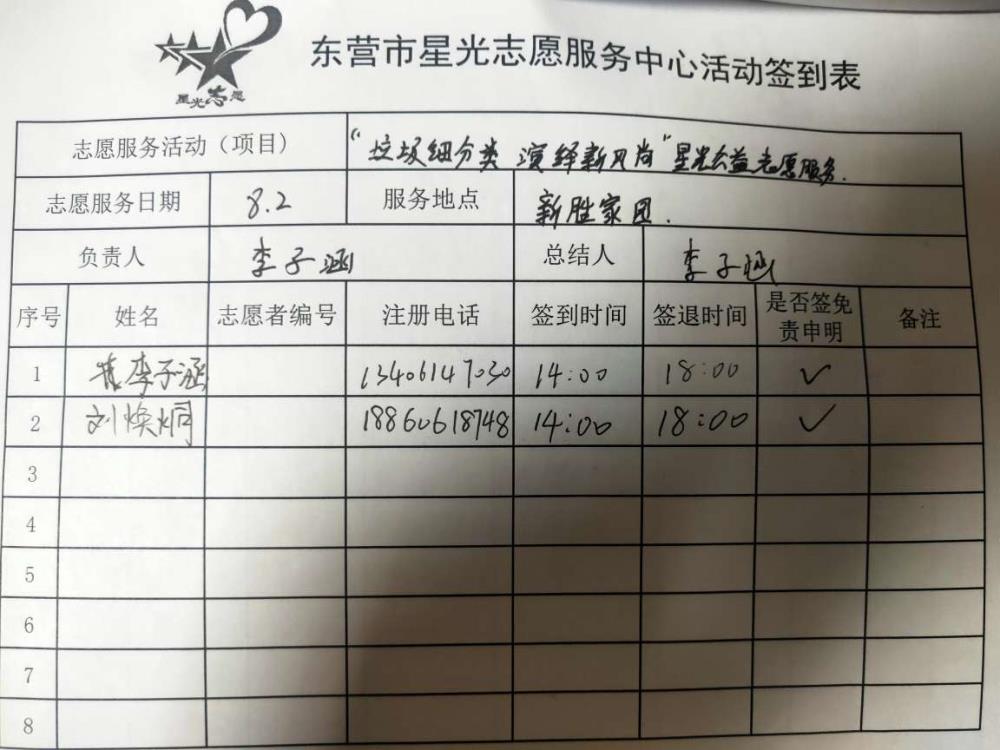 星光志愿
东营市星光志愿服务中心活动签到表
志愿服务活动（项目） “垃圾细分类 演绎新风尚”星光公益志愿服务.
志愿服务日期 8.2 服务地点 新胜家园.
负责人 李子涵 总结人 李子涵
序号 姓名 志愿者编号 注册电话 签到时间 签退时间 是否签免责申明 备注
1 李子涵 13406147030 14:00 18:00 ✓
2 刘焕炯 18860618748 14:00 18:00 ✓
3
4
5
6
7
8